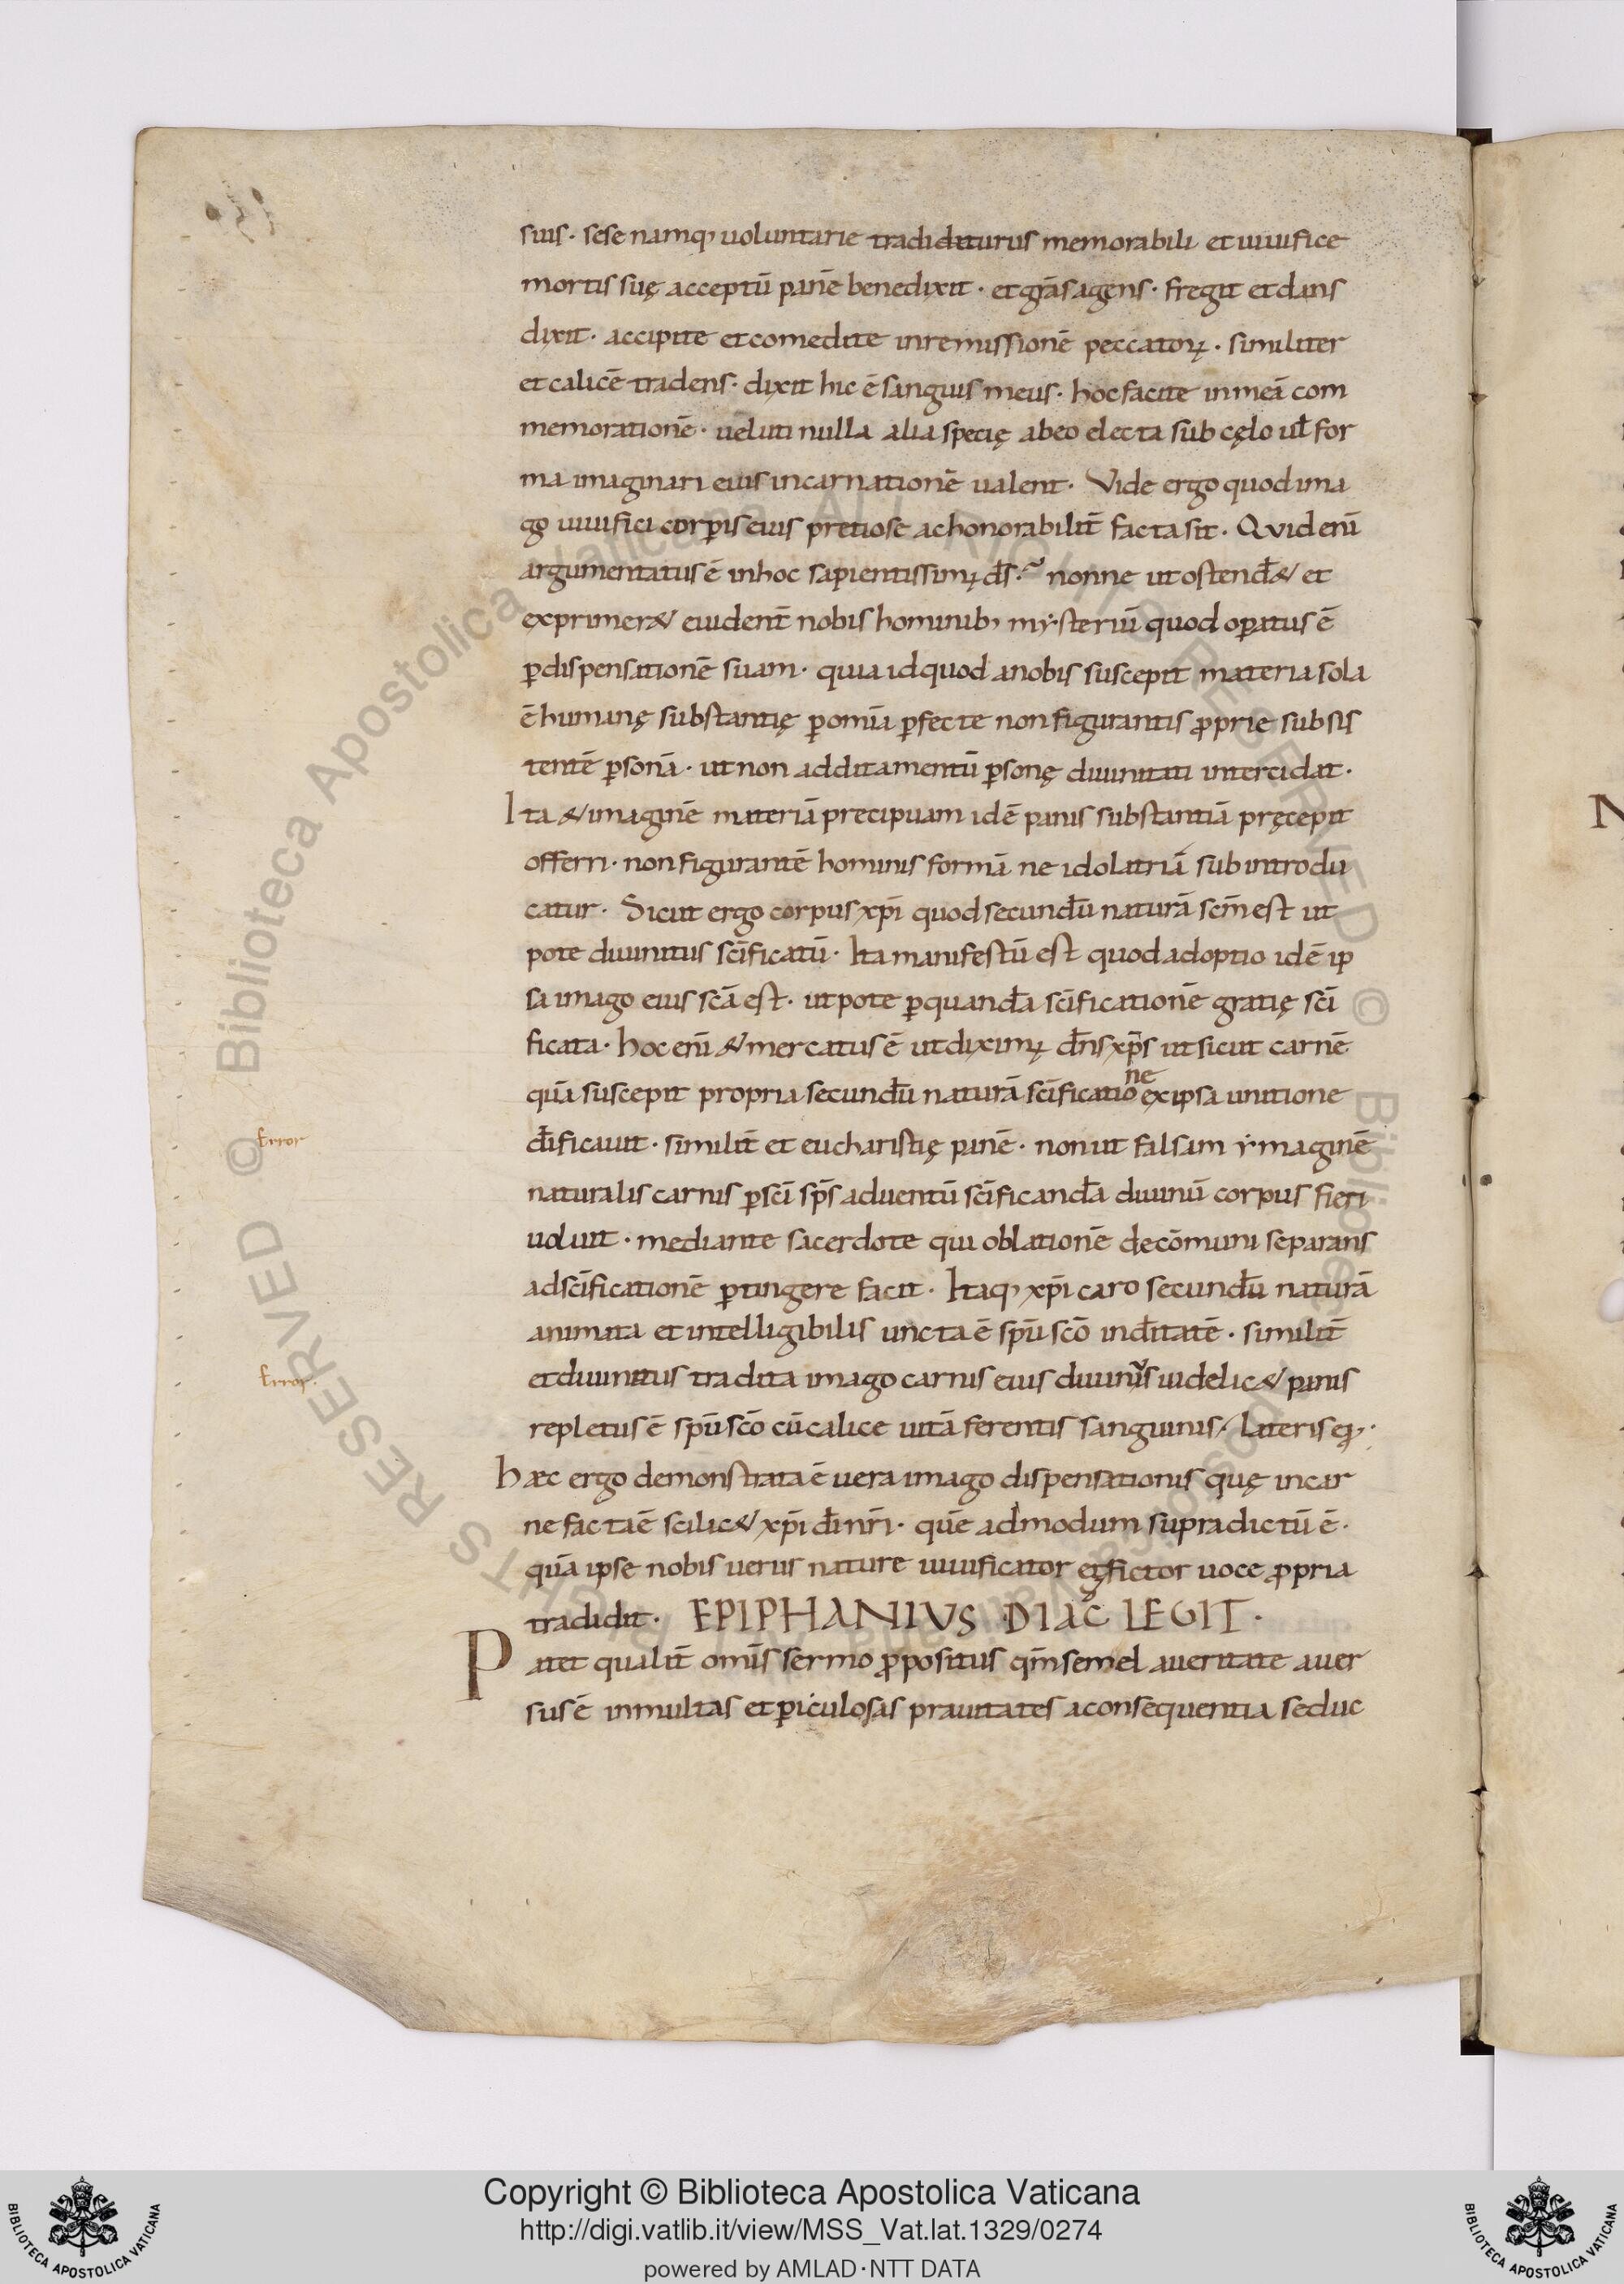 suis · sese namq; uoluntarie tradiditurus memorabili et uiuifice
mortis suę acceptū panē benedixit · et grās agens · fregit et dans
dixit · accipite et comedite in remissionē peccatoꝝ · similiter
et calicē tradens · dixit hic ē sanguis meus · hoc facite in meā com
memorationē · ueluti nulla alia specię ab eo electa sub cęlo ul̄ for
ma imaginari eius incarnationē ualent · Vide ergo quod ima
go uiuifici corꝑis eius pretiose ac honorabilit̄ facta sit · Quid enī
argumentatus ē in hoc sapientissimꝰ d̄s · nonne ut ostend̄& et
exprimer& euident̄ nobis hominib; mẏsteriū quod oꝑatus ē
ꝑ dispensationē suam · quia id quod a nobis suscepit materia sola
ē humanę substantię ꝑ omīa ꝑfecte non figurantis ꝓprie subsis
tentē ꝑsonā · ut non additamentū ꝑsonę diuinitati intercidat ·
Ita & imaginē materiā precipuam idē panis substantiā pręcepit
offerri · non figurantē hominis formā ne idolatriā subintrodu
catur · Sicut ergo corpus xp̄i quod secund̄u naturā sc̄m est ut
pote diuinitus sc̄ificatū · Ita manifestū est quod adoptio idē ip
sa imago eius sc̄a est · utpote ꝑ quand̄a sc̄ificationē gratię sc̄i
ficata · hoc enī & mercatus ē ut diximꝰ d̄ns xp̄s ut sicut carnē
quā suscepit propria secund̄u naturā sc̄ificatione ex ipsa unitione
d̄ificauit · similit̄ et eucharistię panē · non ut falsam ẏmaginē
naturalis carnis ꝑ sc̄i sp̄s aduentū sc̄ificand̄a diuinū corpus fieri
uoluit · mediante sacerdote qui oblationē de cōmuni separans
ad sc̄ificationē ꝑtingere facit · Itaq; xp̄i caro secund̄u naturā
animata et intelligibilis uncta ē sp̄u sc̄o in d̄itatē · similit̄
et diuinitus tradita imago carnis eius diuinus uidelic& panis
repletus ē sp̄u sc̄o cū calice uitā ferentis sanguinis lateris eꝰ ·
Haec ergo demonstrata ē uera imago dispensationis quę in car
ne facta ē scilic& xp̄i d̄i nr̄i · quē admodum supradictū ē ·
quā ipse nobis uerus nature uiuificator et fictor uoce ꝓpria
tradidit · EPIPHANIVS DIAC̄ LEGIT ·
Patet qualit̄ om̄s sermo ꝓpositus qm̄ semel a ueritate auer
sus ē in multas et ꝑiculosas prauitates a consequentia seduc
Error
Error ·
© Biblioteca Apostolica Vaticana ALL RIGHTS RESERVED © Biblioteca Apostolica Vaticana ALL RIGHTS RESERVED
Copyright © Biblioteca Apostolica Vaticana
http://digi.vatlib.it/view/MSS_Vat.lat.1329/0274
powered by AMLAD·NTT DATA
BIBLIOTECA APOSTOLICA VATICANA
BIBLIOTECA APOSTOLICA VATICANA